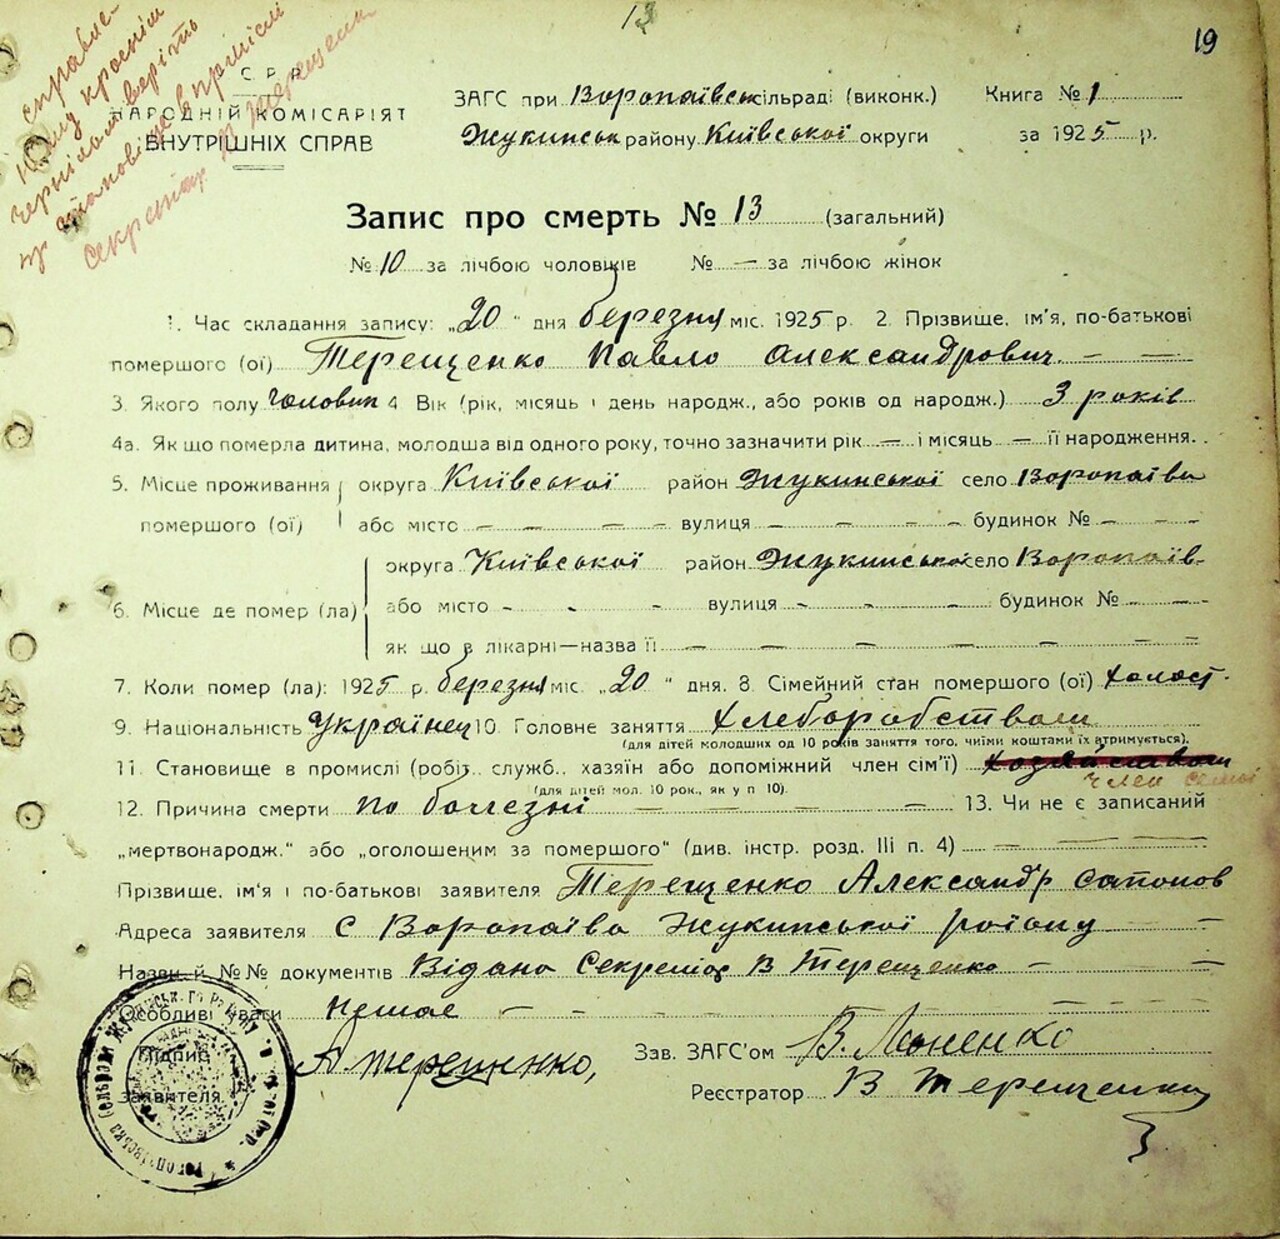 13
19
справле-
ному красним
чернілом верить
С Р Р
НАРОДНІЙ КОМІСАРІЯТ
ВНУТРІШНІХ СПРАВ
ЗАГС при Воропаївськ сільраді (виконк.) Книга № 1
Жукинськ району Київської округи за 1925 р.
Запис про смерть № 13 (загальний)
№ 10 за лічбою чоловіків № — за лічбою жінок
1. Час складання запису: „20“ дня березня міс. 1925 р. 2. Прізвище, ім'я, по-батькові
помершого (ої) Терещенко Павло Александрович — —
3. Якого полу Чоловик 4. Вік (рік, місяць і день народж., або років од народж.) 3 років
4а. Як що померла дитина, молодша від одного року, точно зазначити рік — і місяць — її народження.
5. Місце проживання округа Київської район Жукинської село Воропаїви
помершого (ої) або місто — — — — вулиця — — — будинок № — — —
округа Київської район Жукинської село Воропаїв
6. Місце де помер (ла) або місто - - - вулиця - - - будинок № - - -
як що в лікарні—назва її — — — — — — —
7. Коли помер (ла): 1925 р. березня міс. „20“ дня. 8. Сімейний стан помершого (ої) холост.
9. Національність Українец 10. Головне заняття Хлеборобством
(для дітей молодших од 10 років заняття того, чиїми коштами їх втримується).
11. Становище в промислі (робіт., служб., хазяїн або допоміжний член сім'ї)
член семьї
(для дітей мол. 10 рок., як у п 10).
12. Причина смерти по болезні — — — 13. Чи не є записаний
„мертвонародж.“ або „оголошеним за помершого“ (див. інстр. розд. III п. 4) — — — —
Прізвище, ім'я і по-батькові заявителя Терещенко Александр Сапонов
Адреса заявителя с Воропаїво Жукинської роїону — —
Назви й №№ документів Відано Секретар В Терещенко — —
Особливі уваги Немає — — — — —
Підпис
заявителя А Терещенко,
Зав. ЗАГС'ом
Реєстратор В Терещенко